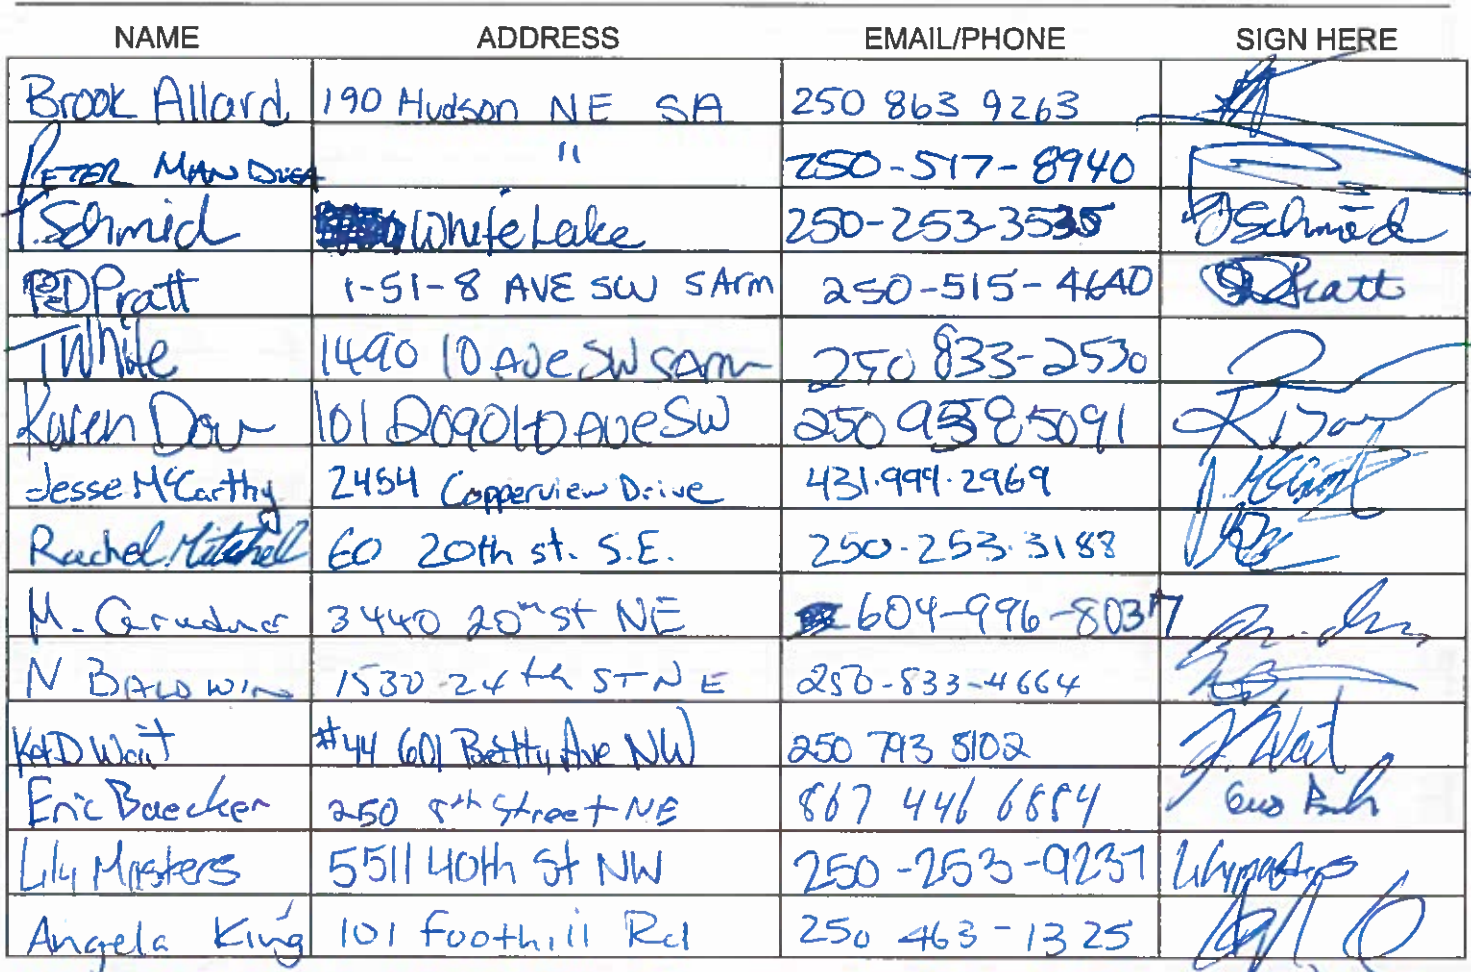 NAME ADDRESS EMAIL/PHONE SIGN HERE
Brook Allard 190 Hudson NE SA 250 863 9263
PETER MAN " 250-517-8940
T. Schmid White Lake 250-253-3535 Schmid
Pratt 1-51-8 AVE SW SArm 250-515-4640 Pratt
T White 1490 10 Ave SW SArm 250 833-2530
Karen Dow 101 2090 10 Ave SW 250 938 5091 K Dow
Jesse McCarthy 2454 Copperview Drive 431.999.2969
Rachel Mitchell 60 20th st. S.E. 250-253-3188
M. 3440 20th st NE 604-996-8037
N BALDWIN 1530-24th ST NE 250-833-4664
K+D Wait #44 601 Beatty Ave NW 250 793 5102 J. Wait
Eric Baecker 250 8th Street NE 867 446 6884
Lily Masters 5511 40th St NW 250-253-9237 Lily masters
Angela King 101 Foothill Rd 250 463-1325